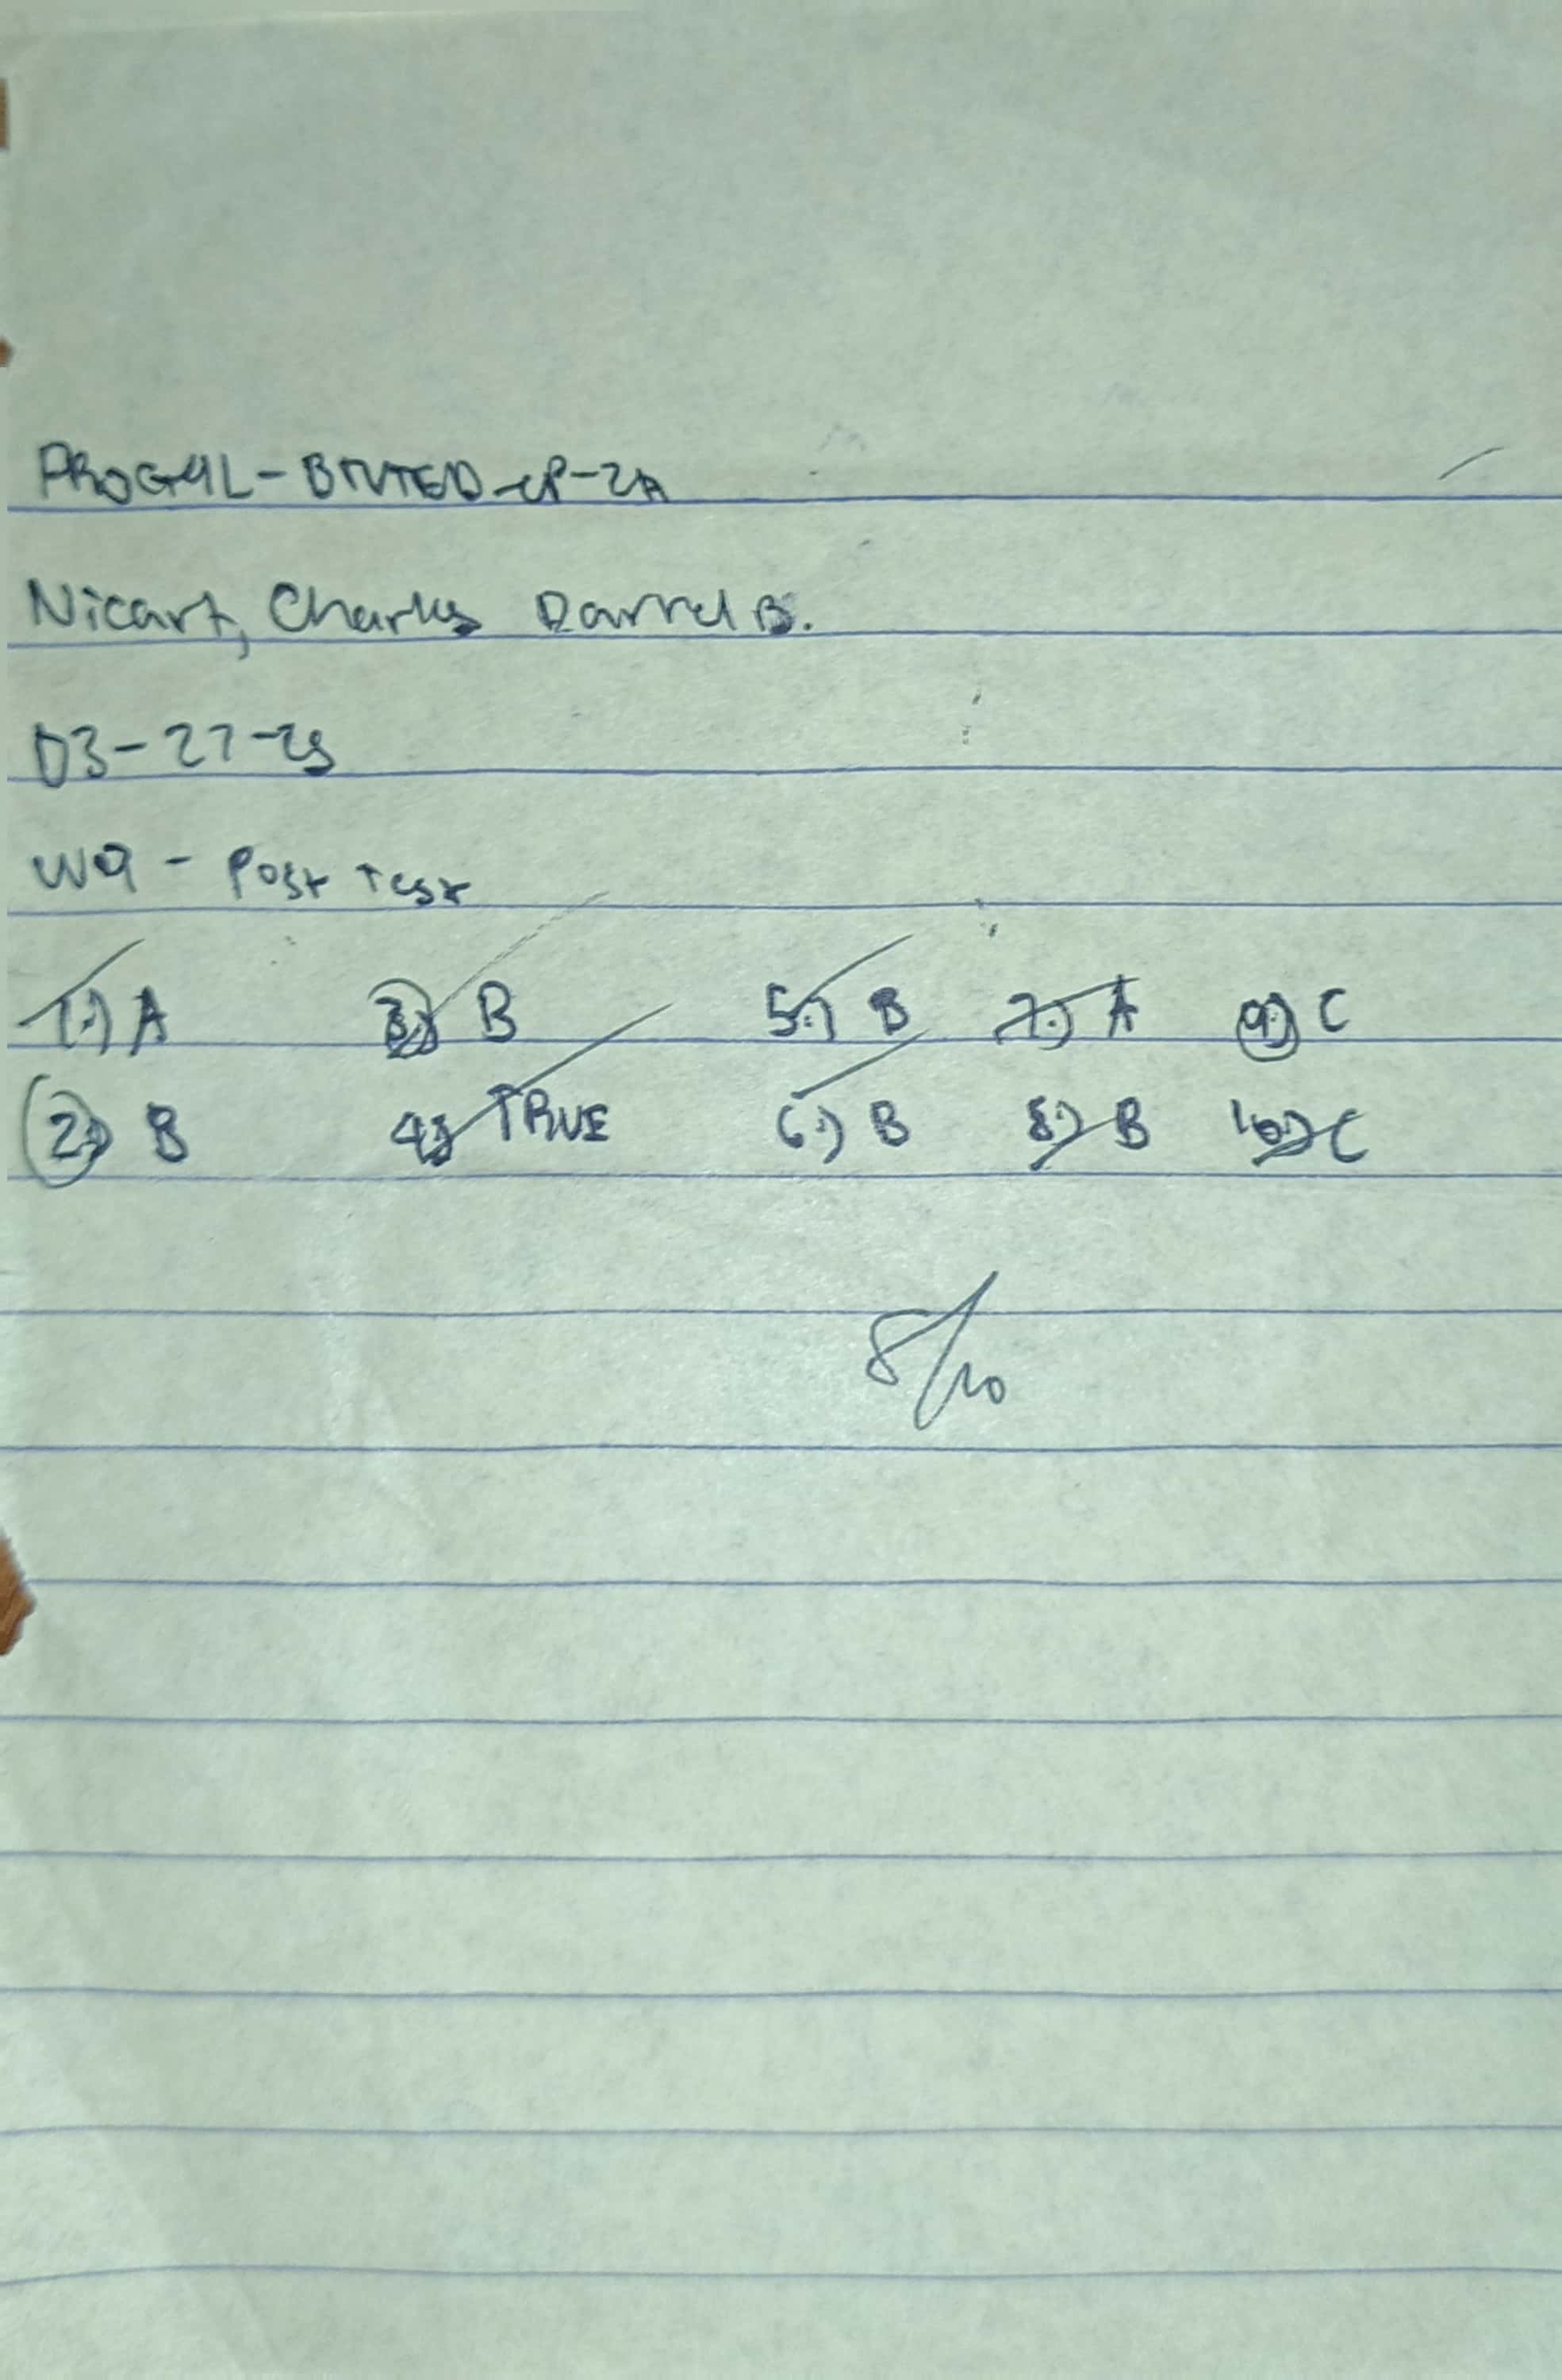 PROG4L-BTVTED-CP-2A
Nicart, Charles Darrel B.
03-27-25
W9 - Post Test
1.) A 3.) B 5.) B 7.) A 9.) C
2.) B 4.) TRUE 6.) B 8.) B 10.) C
8/10